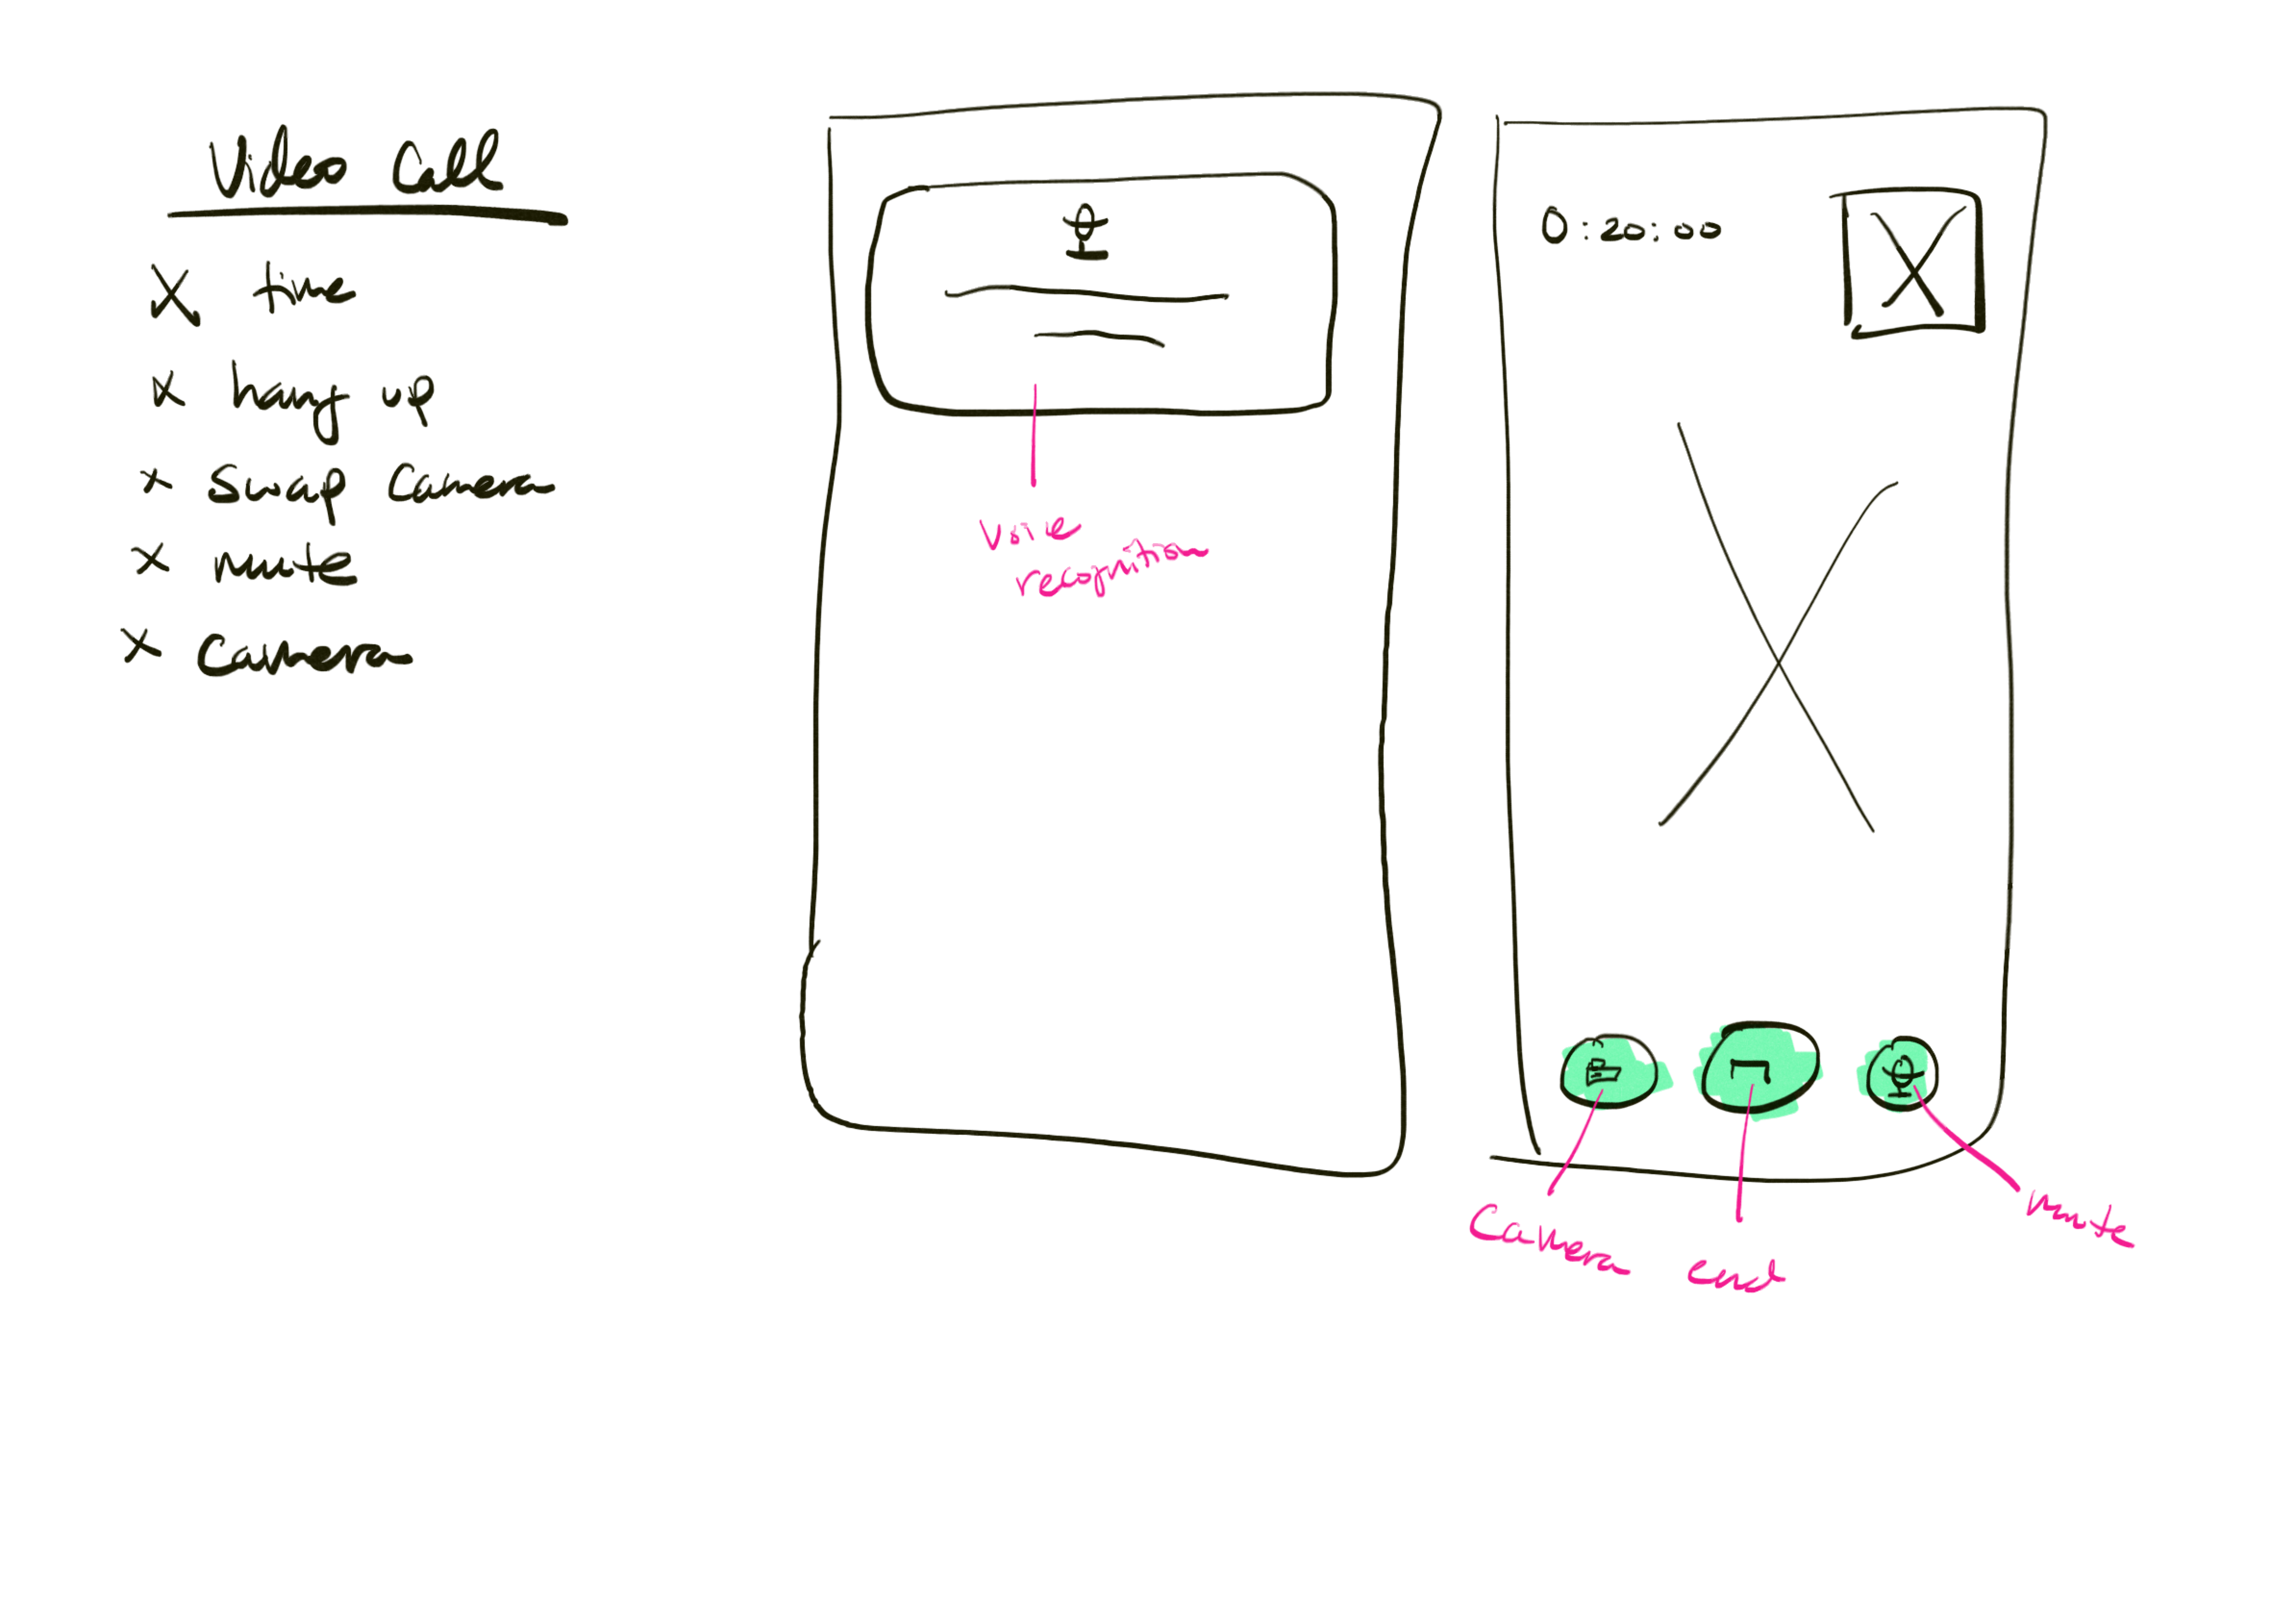 Video Call
x time
x hang up
x Swap Camera
x mute
x Camera
Voice
recognition
0:20:00
Camera
end
mute